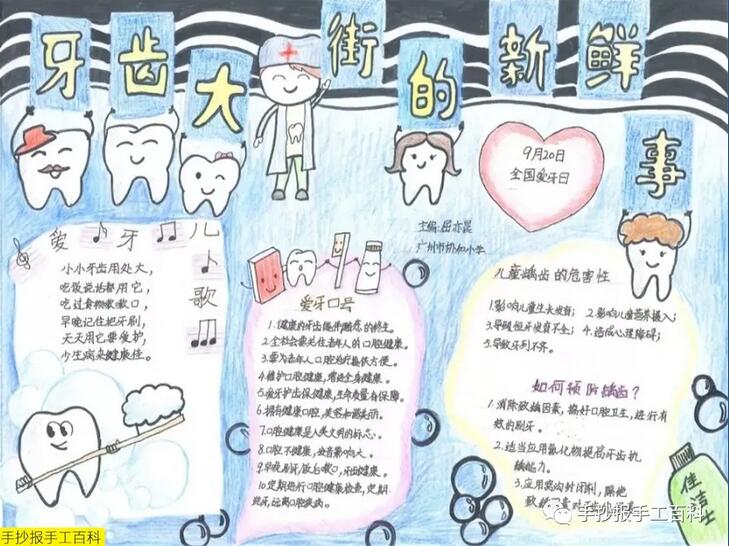 牙齿大街的新鲜事
9月20日
全国爱牙日
主编:屈亦晨
广州市协和小学
爱牙儿歌
小小牙齿用处大,
吃饭说话都用它,
吃过食物漱漱口,
早晚记住把牙刷,
天天用它要爱护,
少生病来健康佳。
爱牙口号
1.健康的牙齿能伴随您的终生。
2.全社会要关注老年人的口腔健康。
3.要为老年人口腔治疗提供方便。
4.维护口腔健康,增进全身健康。
5.爱牙护齿保健康,生命质量有保障。
6.拥有健康口腔,
7.口腔健康是人类文明的标志。
8.口腔不健康,发音影响大。
9.早晚刷牙,饭后漱口,牙齿健康。
10.定期进行口腔健康检查,定期
洗牙,远离口腔疾病。
儿童龋齿的危害性
1.影响儿童生长发育; 2.影响儿童营养摄入;
3.导致恒牙发育不全; 4.造成心理障碍;
5.导致牙列不齐。
如何预防龋齿?
1.消除致龋因素,搞好口腔卫生,进行有
效的刷牙。
2.适当应用氟化物提高牙齿抗
龋能力。
3.应用窝沟封闭剂,隔绝
致龋
佳洁士
手抄报手工百科
手抄报手工百科